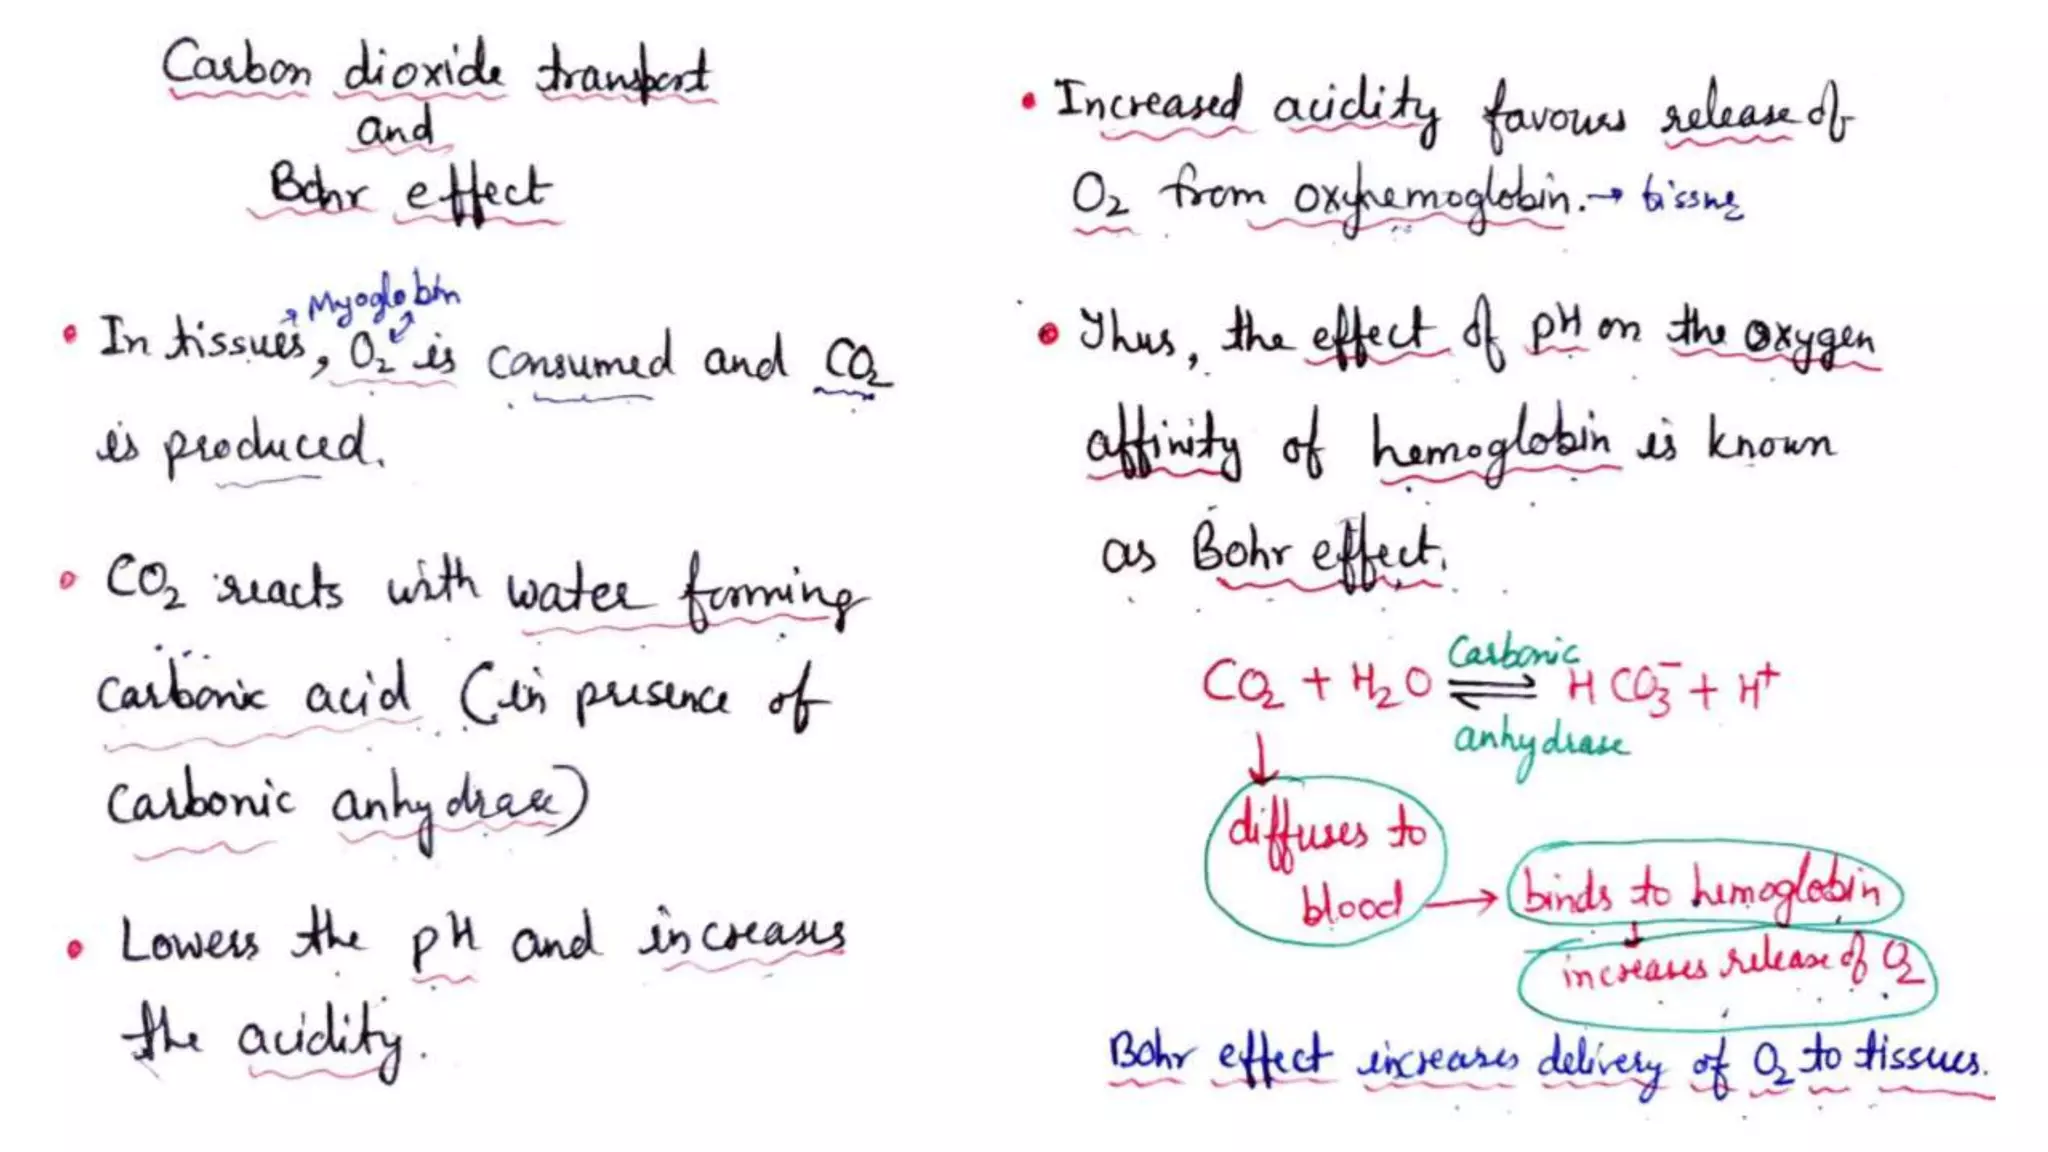 Carbon dioxide transport
and
Bohr effect
→ Myoglobin
• In tissues, O₂ is consumed and CO₂
is produced.
• CO₂ reacts with water forming
carbonic acid (in presence of
carbonic anhydrase)
• Lowers the pH and increases
the acidity.
• Increased acidity favours release of
O₂ from oxyhemoglobin. → tissue
• Thus, the effect of pH on the oxygen
affinity of hemoglobin is known
as Bohr effect.
Carbonic
CO₂ + H₂O ⇌ HCO₃⁻ + H⁺
anhydrase
↓
diffuses to
blood → binds to hemoglobin
↓
increases release of O₂
Bohr effect increases delivery of O₂ to tissues.